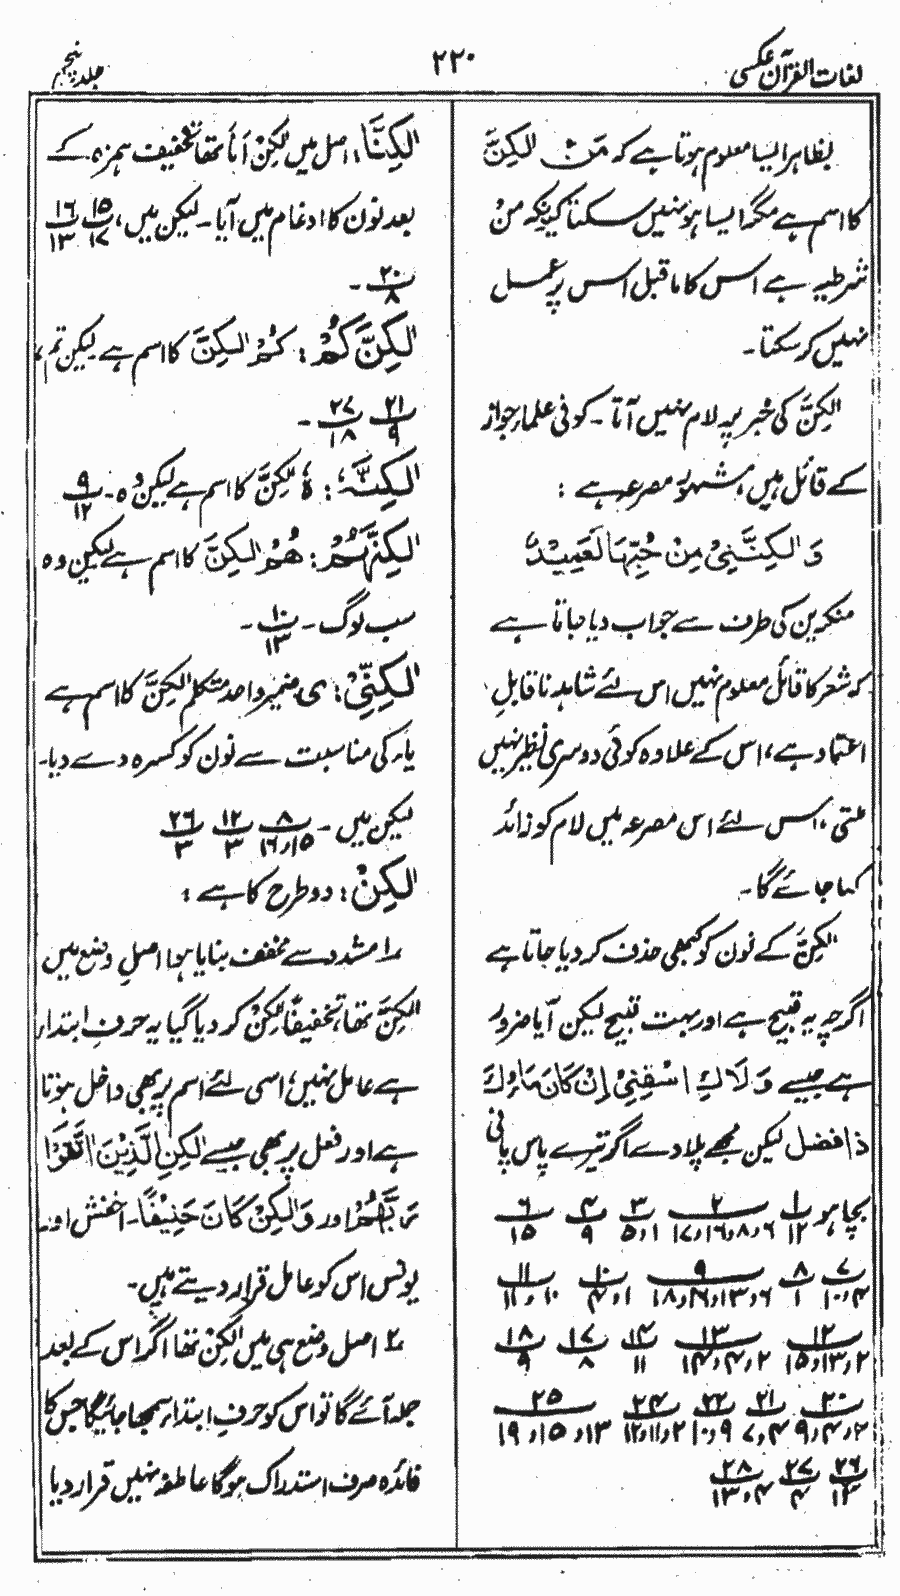 لغات القرآن عکسی
۲۲۰
جلد پنجم
بظاہر ایسا معلوم ہوتا ہے کہ مَنْ لٰکِنَّ
کا اسم ہے مگر ایسا ہو نہیں سکتا کیونکہ مَنْ
شرطیہ ہے اس کا ماقبل اس پر عمل
نہیں کر سکتا۔
لٰکِنَّ کی خبر پر لام نہیں آتا۔ کوفی علماء جواز
کے قائل ہیں، مشہور مصرعہ ہے :
وَ لٰکِنَّنِیْ مِنْ حُبِّهَا لَعَمِیْدٌ
منکرین کی طرف سے جواب دیا جاتا ہے
کہ شعر کا قائل معلوم نہیں اس لئے شاہد ناقابلِ
اعتماد ہے، اس کے علاوہ کوئی دوسری نظیر نہیں
ملتی، اس لئے اس مصرعہ میں لام کو زائد
کہا جائے گا۔
لٰکِنَّ کے نون کو کبھی حذف کر دیا جاتا ہے
اگرچہ یہ قبیح ہے اور بہت قبیح لیکن آیا ضرور
ہے جیسے وَلَاكِ اسْقِنِیْ اِنْ كَانَ مَاءُكَ
ذا فضل لیکن مجھے پلا دے اگر تیرے پاس پانی
بچا ہو ۱/۱۲ ۲/۶،۸،۱۶،۱۷ ۳/۱،۵ ۴/۹ ۶/۱۵
۷/۴،۱۰ ۸/۱ ۹/۶،۱۳،۱۶،۱۸ ۱۰/۱،۴ ۱۱/۱۰،۱۱
۱۲/۲،۱۳،۱۵ ۱۳/۲،۴،۱۴ ۱۴/۱۱ ۱۷/۸ ۱۸/۹
۲۰/۲،۴،۹ ۲۱/۴،۷ ۲۲/۹،۱۰ ۲۴/۲،۱۱،۱۲ ۲۵/۱۳،۱۵،۱۹
۲۶/۱۴ ۲۷/۴ ۲۸/۴،۱۳
لٰکِنَّا: اصل میں لٰکِنْ اَنَا تھا تخفیف ہمزہ کے
بعد نون کا ادغام میں آیا۔ لیکن میں، ۱۵/۱۷ ۱۶/۱۳
۲۰/۸ ۔
لٰکِنَّکُمْ: کُمْ لٰکِنَّ کا اسم ہے۔ لیکن تم،
۲۱/۹ ۲۷/۱۸ ۔
لٰکِنَّہٗ: ہٗ لٰکِنَّ کا اسم ہے لیکن وہ۔ ۹/۱۲
لٰکِنَّہُمْ: ہُمْ لٰکِنَّ کا اسم ہے لیکن وہ
سب لوگ۔ ۱۰/۱۳ ۔
لٰکِنِّیْ: ی ضمیر واحد متکلم لٰکِنَّ کا اسم ہے
یاء کی مناسبت سے نون کو کسرہ دے دیا۔
لیکن میں۔ ۸/۱۵،۱۶ ۱۲/۳ ۲۶/۳
لٰکِنْ: دو طرح کا ہے :
۱؎ مشدد سے مخفف بنایا ہوا اصلِ وضع میں
لٰکِنَّ تھا، تخفیفاً لٰکِنْ کر دیا گیا یہ حرفِ ابتداء
ہے عامل نہیں، اسی لئے اسم پر بھی داخل ہوتا
ہے اور فعل پر بھی جیسے لٰکِنِ الَّذِیْنَ اتَّقَوْا
رَبَّهُمْ اور وَلٰکِنْ کَانَ حَنِیْفًا۔ اخفش اور
یونس اس کو عامل قرار دیتے ہیں۔
۲؎ اصل وضع ہی میں لٰکِنْ تھا اگر اس کے بعد
جملہ آئے گا تو اس کو حرفِ ابتداء سمجھا جائیگا جس کا
فائدہ صرف استدراک ہوگا عاطفہ نہیں قرار دیا